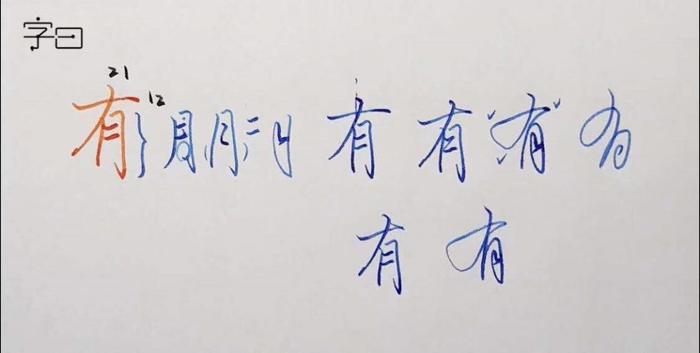 字曰
21
12
有 月 月 有 有 "有" 有
有 有